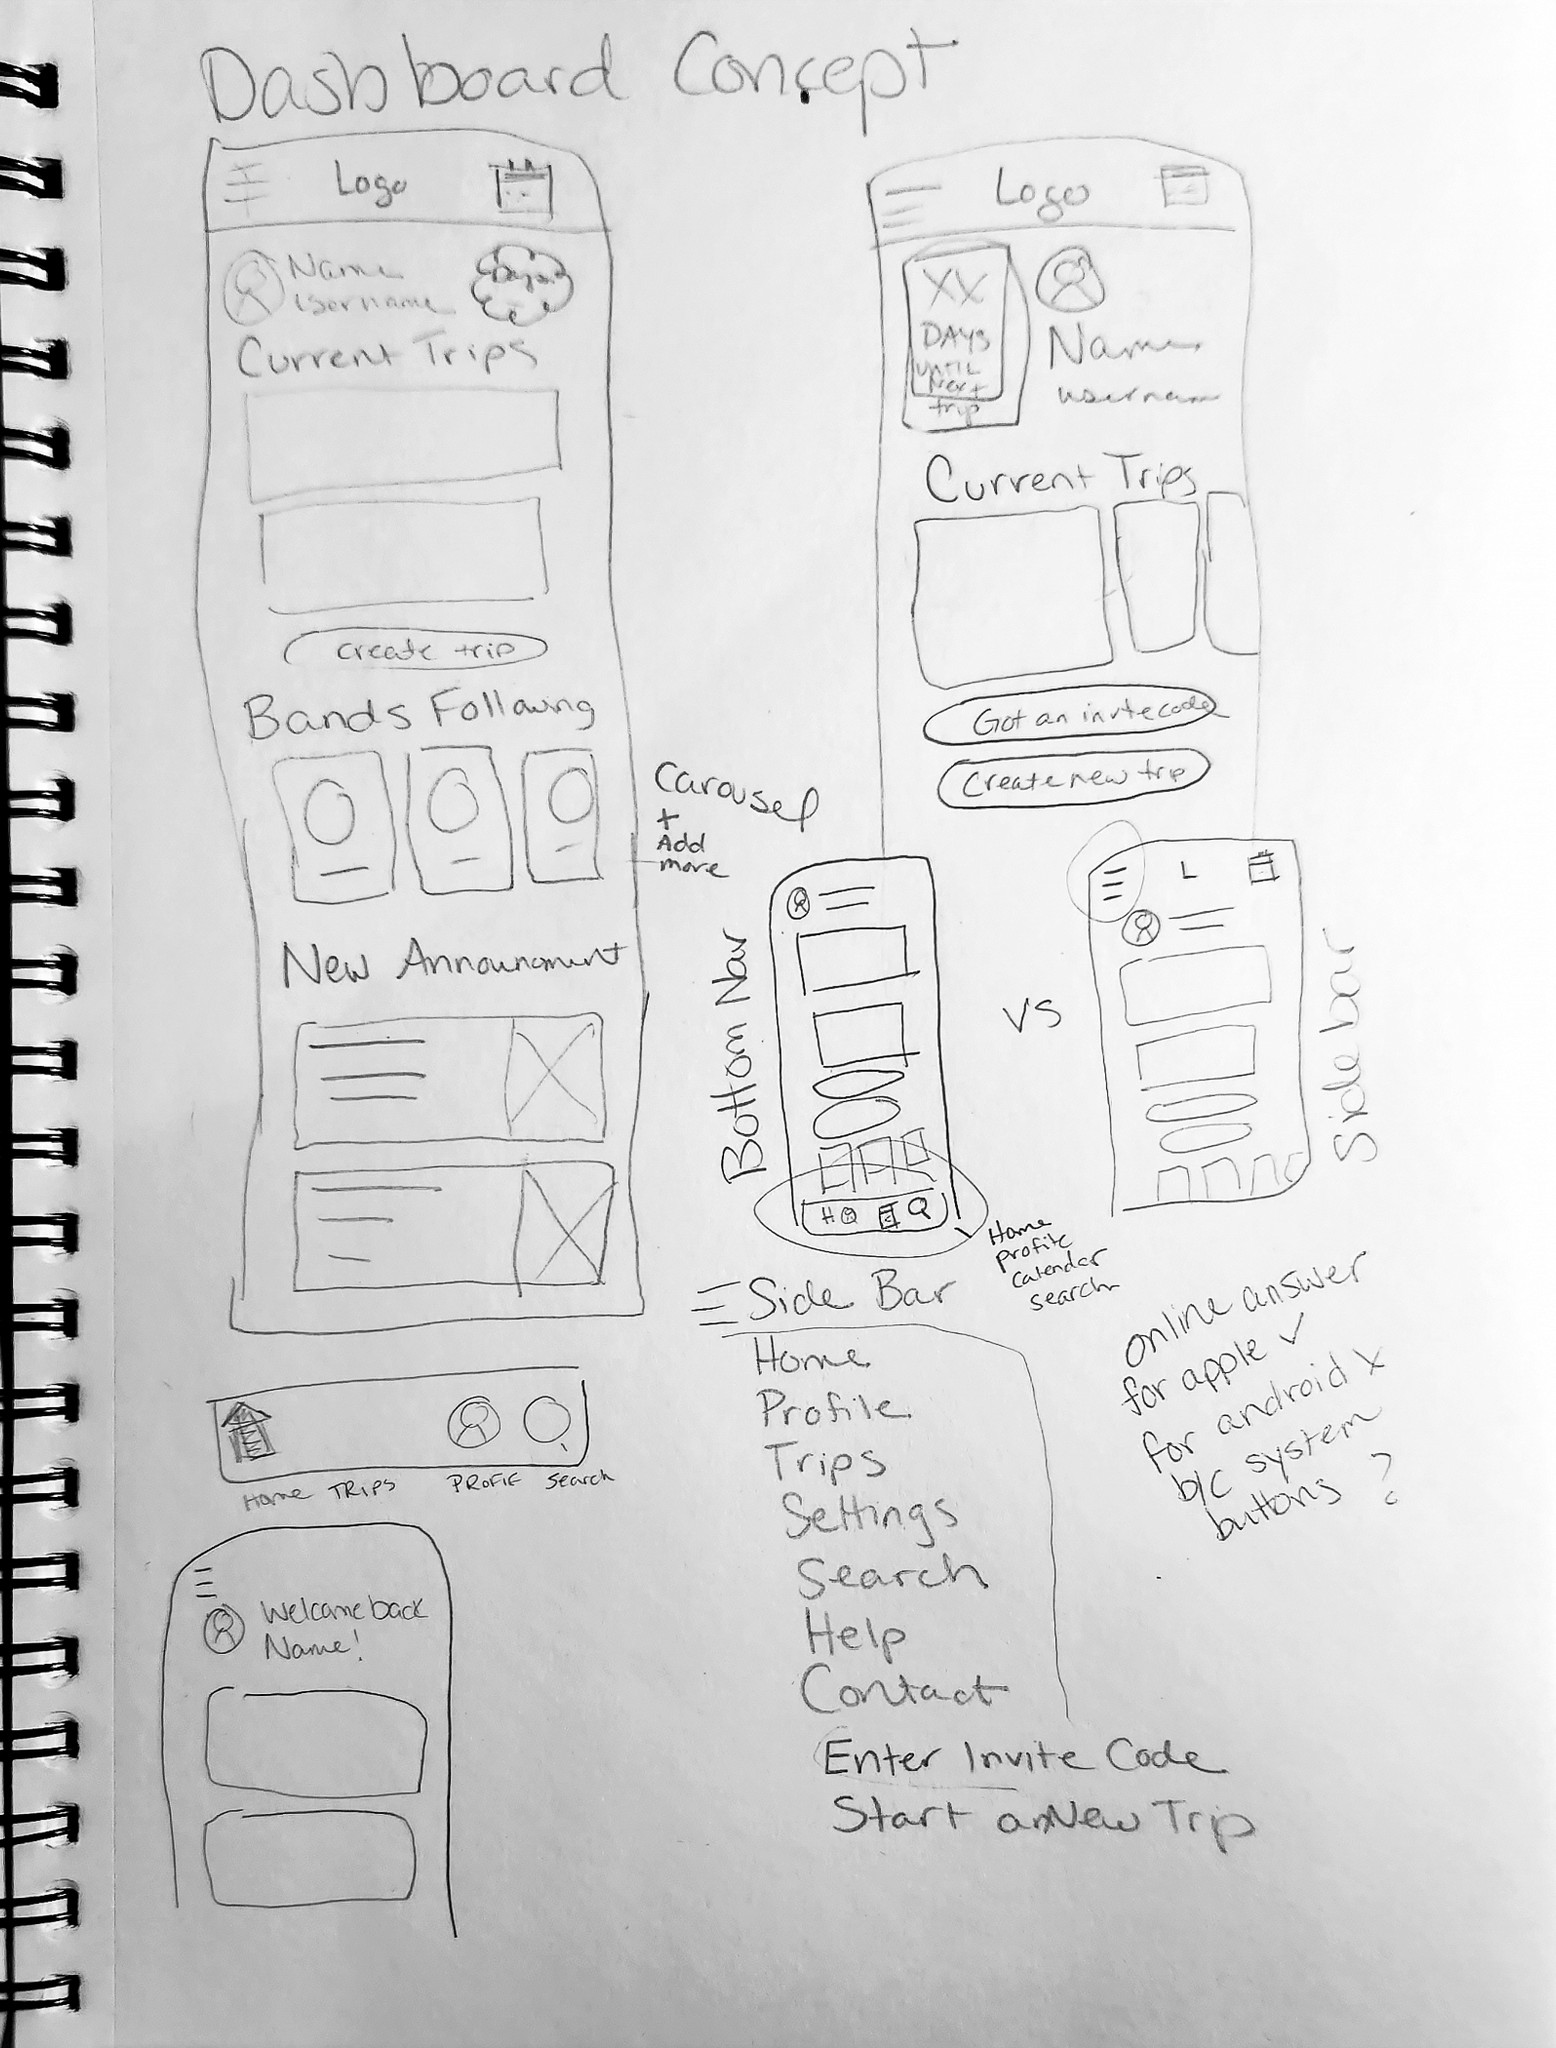 Dashboard Concept
Logo
Name
username
Current Trips
create trip
Bands Following
Carousel
+
Add
more
New Announcment
Logo
XX
DAYS
UNTIL
Next
trip
Name
username
Current Trips
Got an invite code
Create new trip
Bottom Nav
H
Home
Profile
Calendar
search
VS
L
Side bar
Side Bar
Home
Profile
Trips
Settings
Search
Help
Contact
Enter Invite Code
Start a New Trip
online answer
for apple ✓
for android x
b/c system
buttons ?
Home TRIPS PROFIE Search
Welcome back
Name!